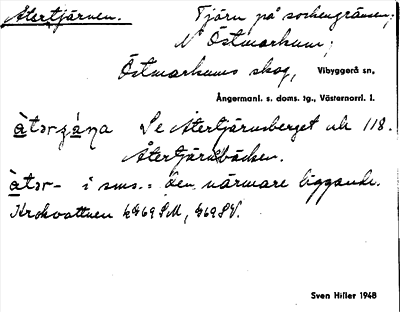 Återtjärnen. Tjärn på sockengränsen;
N Östmarkum;
Östmarkums skog, Vibyggerå sn.
Ångermanl. s. doms. tg., Västernorrl. l.
Se Återtjärnsberget uk 118.
Återtjärnsbäcken.
àtər- i sms.: den närmare liggande.
Krokvattnen
Sven Hiller 1948